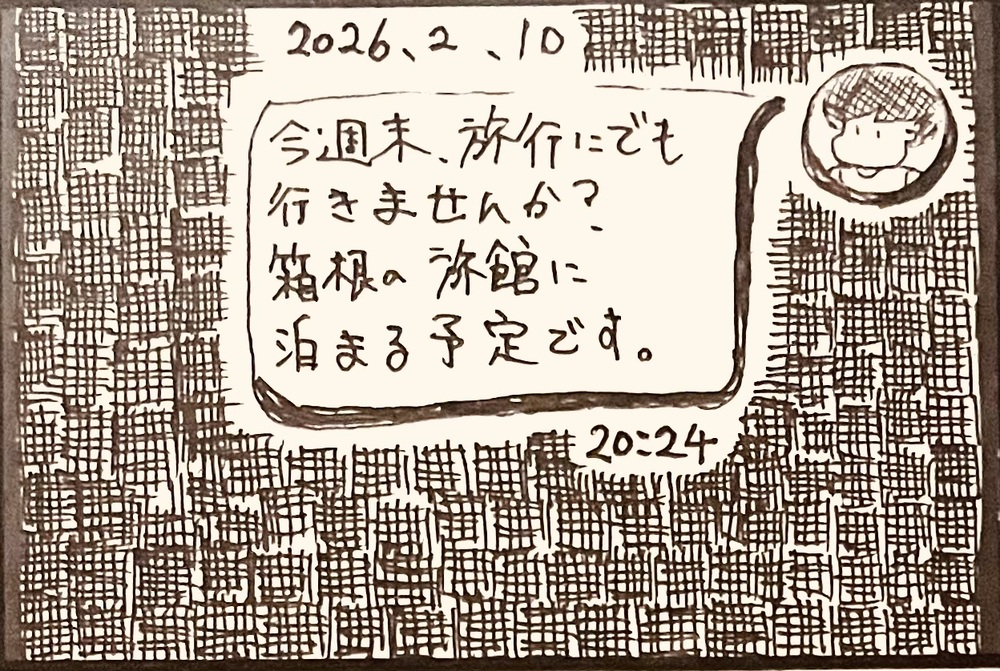 2026、2、10
今週末、旅行にでも
行きませんか？
箱根の旅館に
泊まる予定です。
20:24